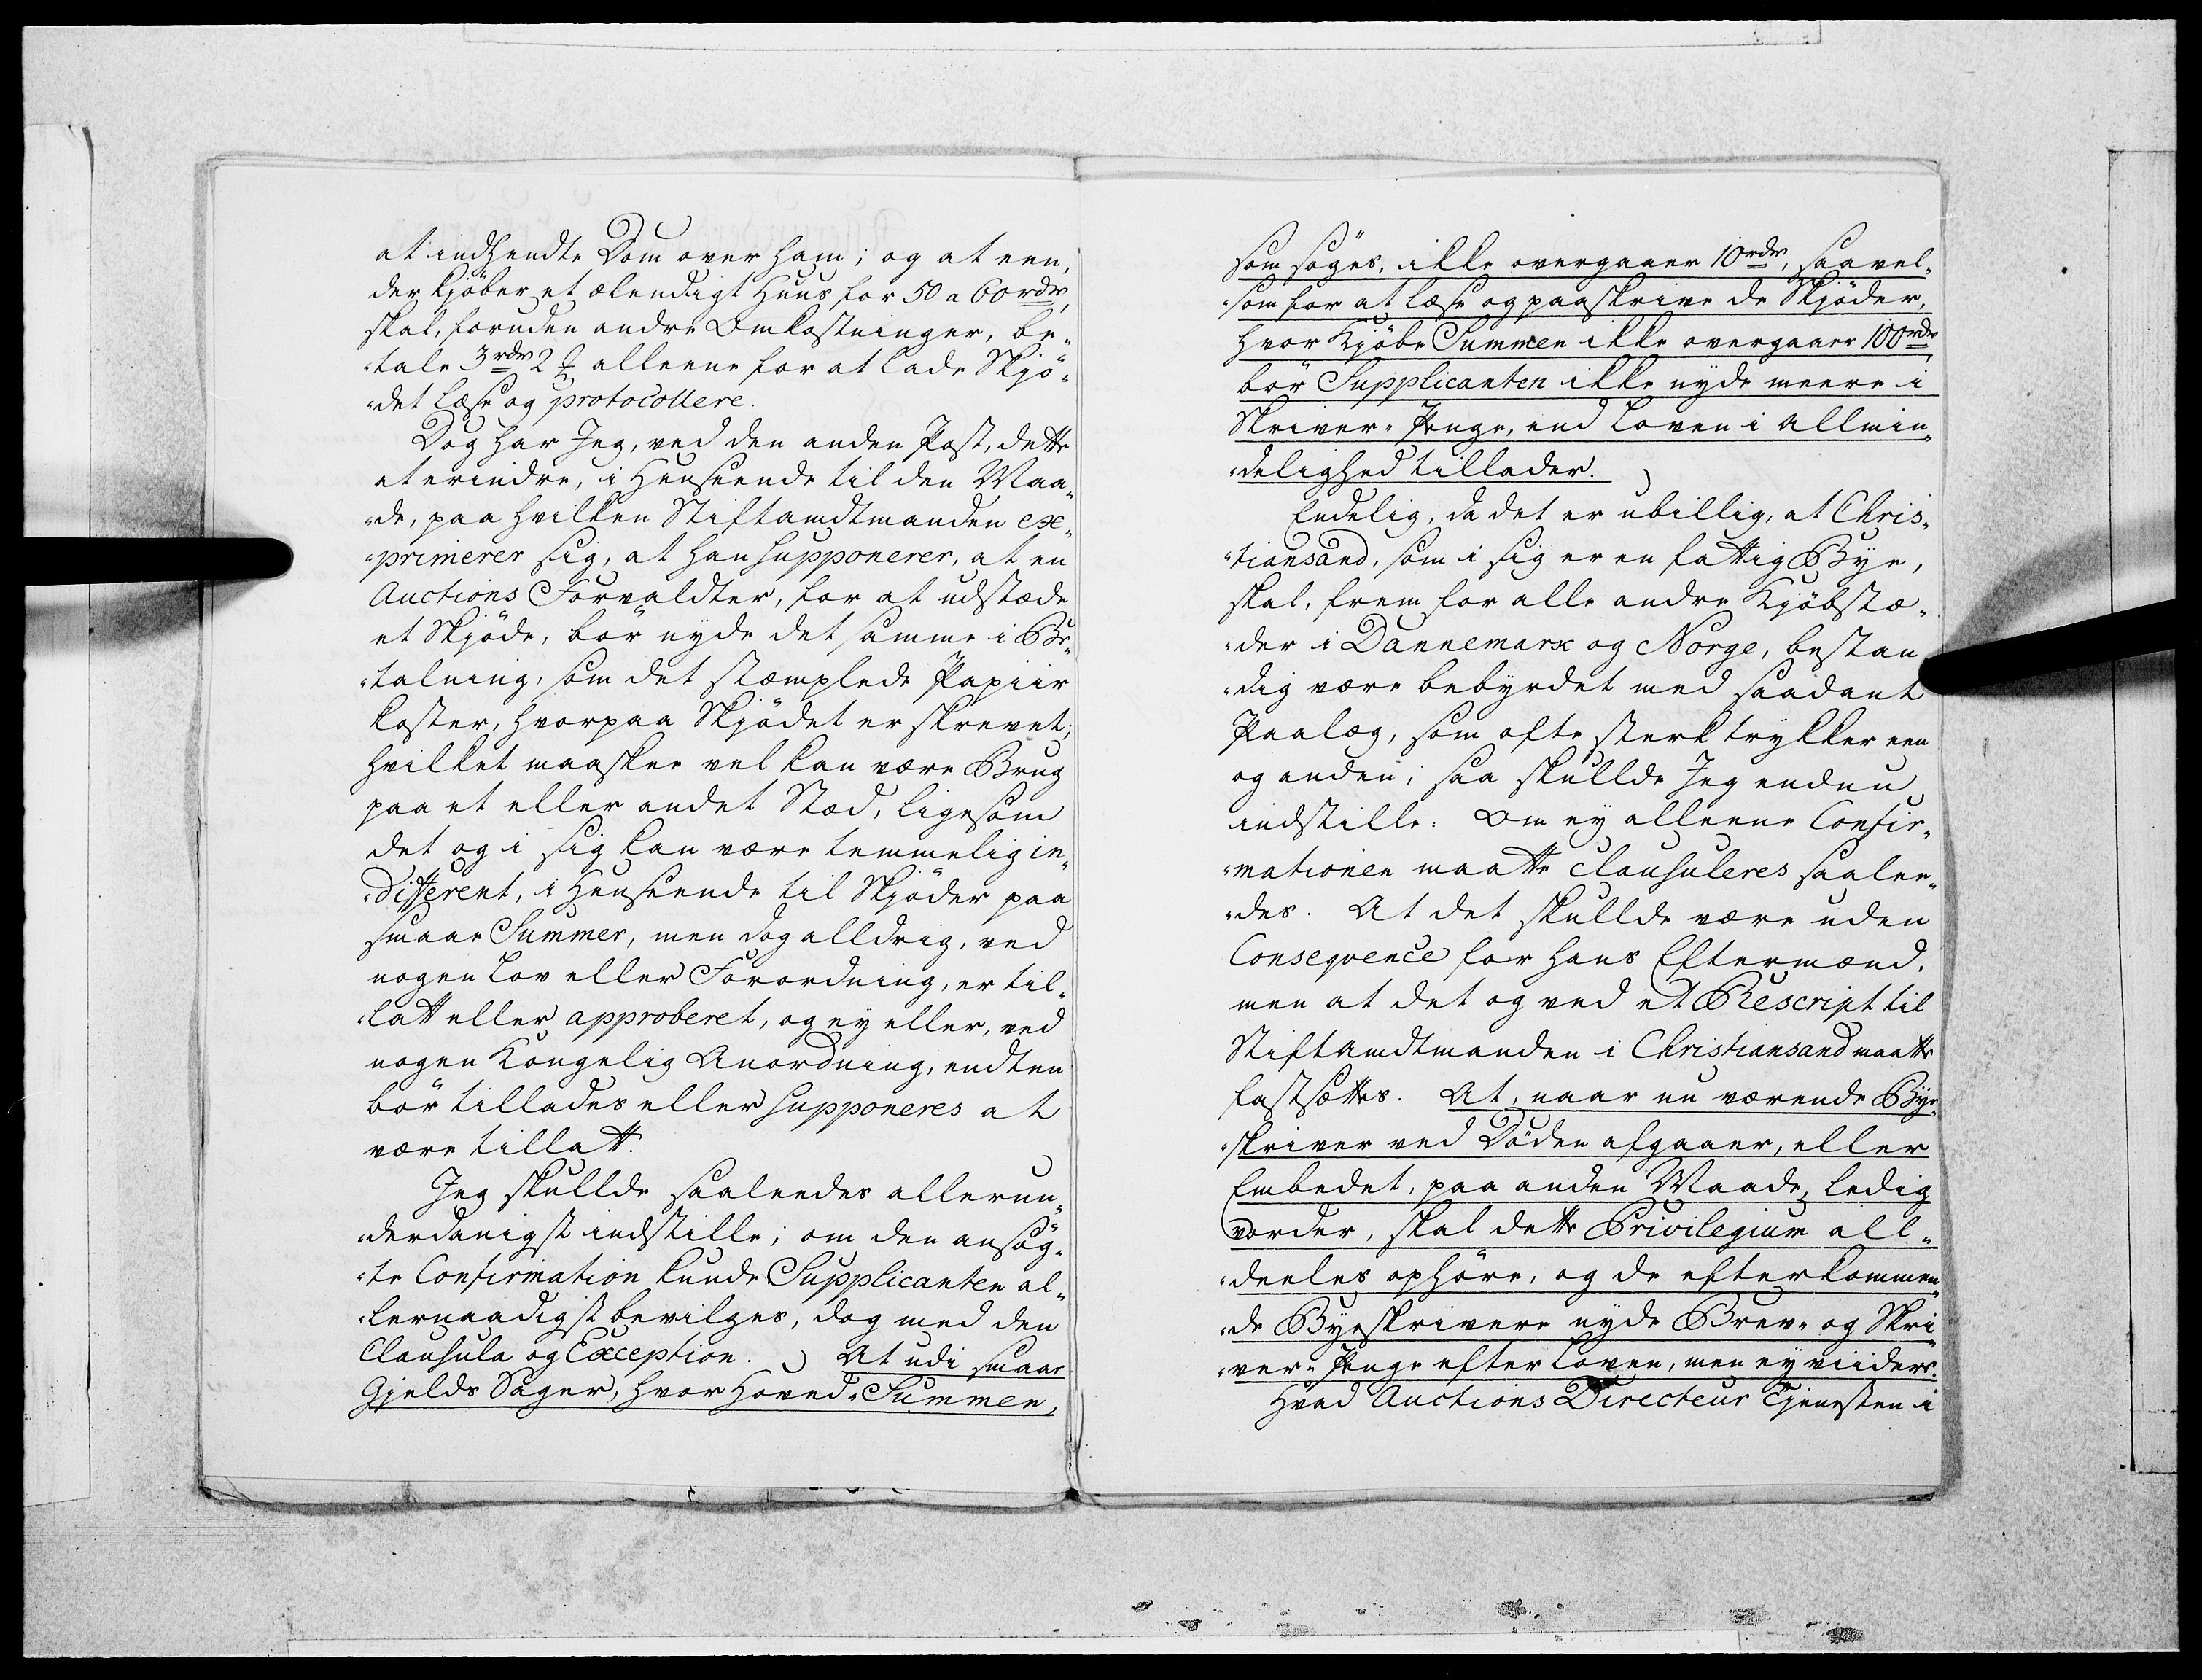 at indhendte Dom over ham; og at een,
der kjøber et elendigt Huus for 50 a 60 rdr,
skal, foruden andre Omkostninger, be„
„tale 3 rdr 2 ℔ alleene for at lade Skjö„
„det læse og protocollere.
Dog har Jeg, ved den anden Post, dette
at erindre, i Henseende til den Maa„
„de, paa hvilken Stiftamtmanden ex„
„primerer sig, at han supponerer, at en
Auctions Forvaldter, for at udstæde
et Skjöde, bör nyde det samme i Be„
„talning, som det stemplede Papiir
koster, hvorpaa Skjödet er skrevet;
hvilket maaskee vel kan være Brug
paa et eller andet Stæd, ligesom
det og i sig kan være temmelig in„
„different, i Henseende til Skjöder paa
smaae Summer, men dog alldrig, ved
nogen Lov eller Forordning, er til„
„latt eller approberet, og ey eller, ved
nogen Kongelig Anordning, endten
bör tillades eller supponeres at
være tillatt.
Jeg skullde saaleedes allerun„
„derdanigst indstille; om den ansög„
„te Confirmation kunde Supplicanten al„
„lernaadigst bevilges, dog med den
Clausula og Exception.) At udi smaae
Gjelds Sager, hvor Hoved„Summen,
som söges, ikke overgaaer 10 rdr, saavel„
„som for at læse og paaskrive de Skjöder,
hvor Kjöbe Summen ikke overgaaer 100 rdr,
bör Supplicanten ikke nyde meere i
Skriver„Penge, end Loven i Allmin„
„delighed tillader.)
Endelig, da det er ubillig, at Chris„
„tiansand, som i sig er en fattig Bye,
skal, frem for alle andre Kjöbstæ„
„der i Dannemarx og Norge, bestan„
„dig være bebyrdet med saadant
Paalæg, som ofte sterk trykker een
og anden; saa skullde Jeg endnu
indstille: Om ey alleene Confir„
„mationen maatte clausuleres saalee„
„des. At det skullde være uden
Conseqvence for hans Eftermænd.
men at det og ved et Rescript til
Stiftamtmanden i Christiansand maatte
fastsættes. At, naar nu værende Bye„
„skriver ved Döden afgaaer, eller
Embedet, paa anden Maade, ledig
vorder, skal dette Privilegium all„
„deeles ophöre, og de efterkommen„
„de Byeskrivere nyde Brev„ og Skri„
„ver„Penge efter Loven, men ey viidere.
Hvad Auctions Directeur Tjenesten i